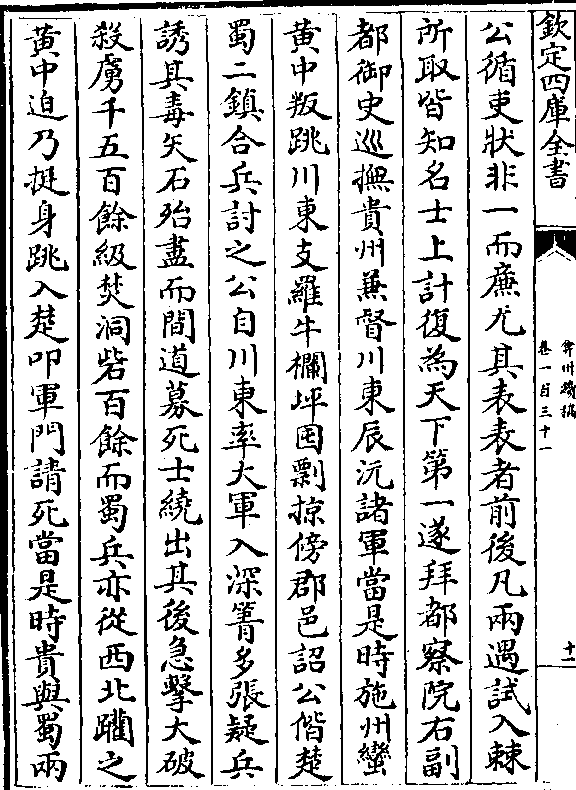 欽定四庫全書
弇州續稿
卷一百三十一
十一
公循吏狀非一而廉尤其表表者前後凡兩遇試入棘
所取皆知名士上計復為天下第一遂拜都察院右副
都御史巡撫貴州兼督川東辰沅諸軍當是時施州蠻
黄中叛跳川東支羅牛欄坪囤剽掠傍郡邑詔公偕楚
蜀二鎮合兵討之公自川東率大軍入深箐多張疑兵
誘其毒矢石殆盡而間道募死士繞出其後急擊大破
殺虜千五百餘級焚洞砦百餘而蜀兵亦從西北躪之
黄中迫乃挺身跳入楚叩軍門請死當是時貴與蜀兩